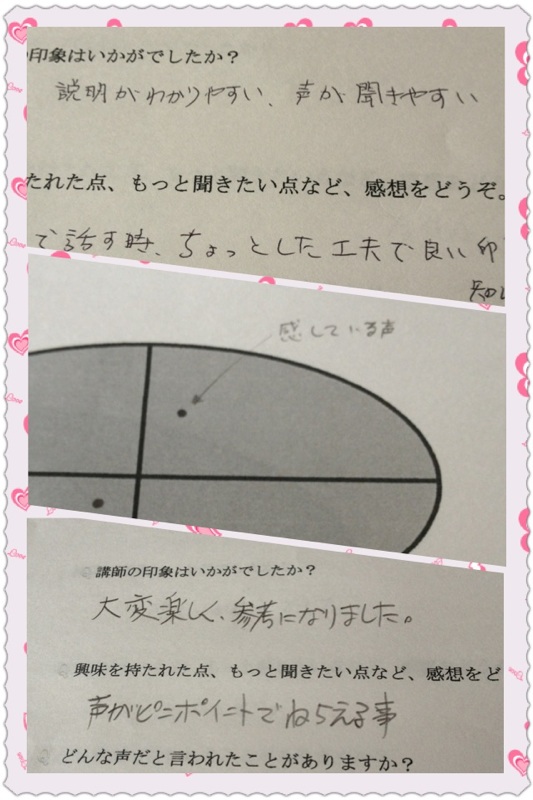 の印象はいかがでしたか？
説明がわかりやすい、声が聞きやすい
たれた点、もっと聞きたい点など、感想をどうぞ。
で話す時、ちょっとした工夫で良い印
知
感している声
講師の印象はいかがでしたか？
大変楽しく、参考になりました。
興味を持たれた点、もっと聞きたい点など、感想をど
声がピンポイントでねらえる事
どんな声だと言われたことがありますか？
Love
Love
Love
Love